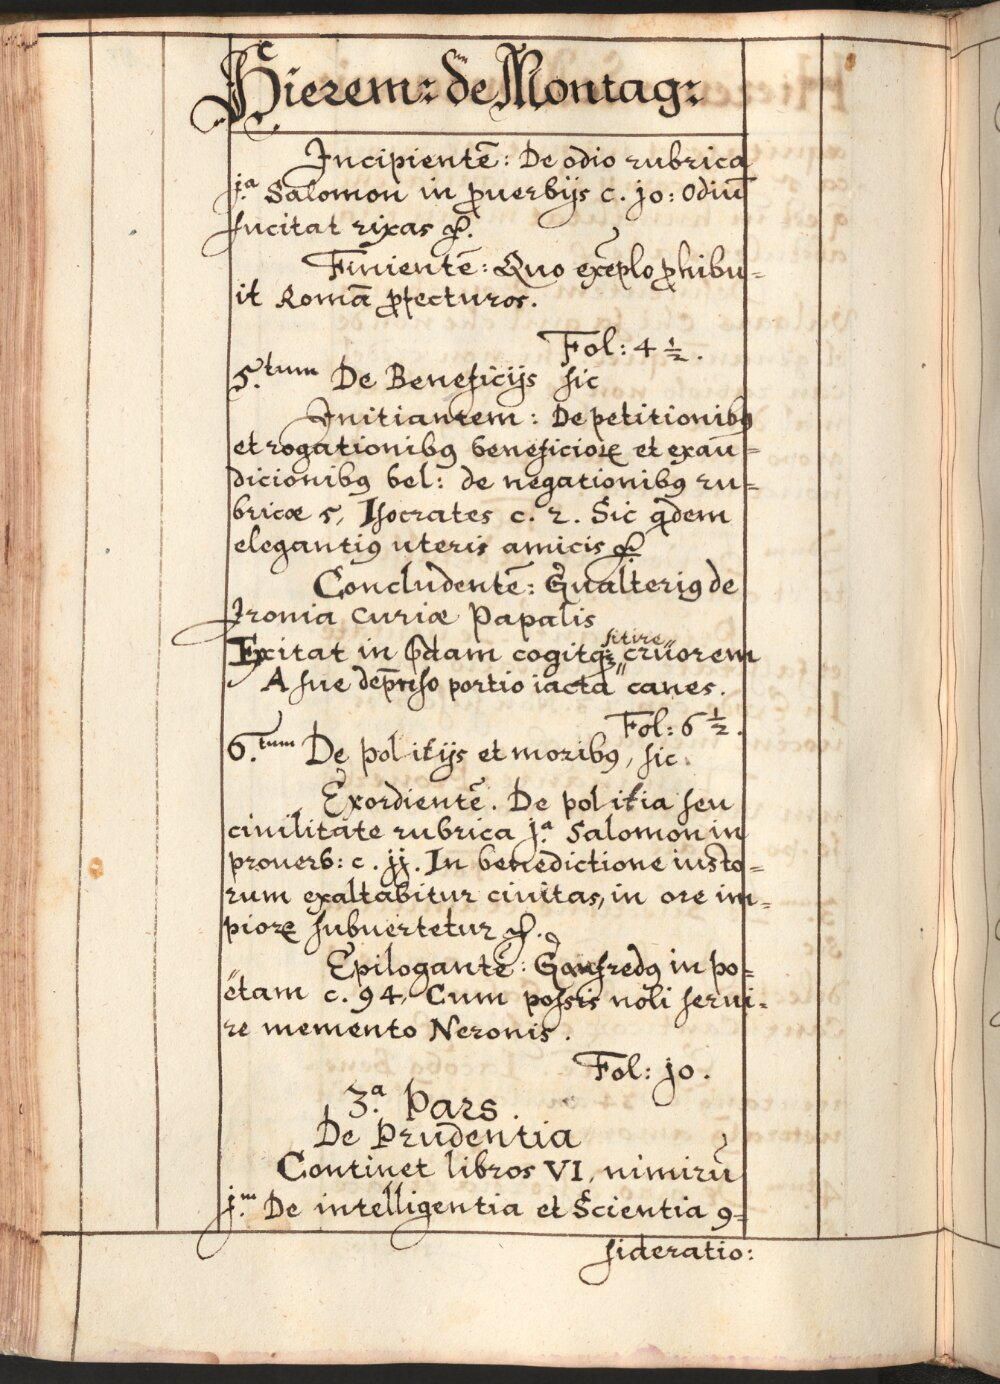 Hierem: de Montag:
Incipientē: De odio rubrica
j.ª Salomon in ꝓuerbijs c. jo: Odiū
suscitat rixas ⁊c.
Finientē: Quo exēplo ꝓhibu=
it Romā ꝓfecturos.
Fol: 4 ½.
5.tum De Beneficijs sic
Initiantem: De petitionibꝰ
et rogationibꝰ beneficioꝝ et exau=
dicionibꝰ vel: de negationibꝰ ru=
bricæ 5, Isocrates c. 2. Sic qdem
elegantiꝰ uteris amicis ⁊c.
Concludentē: Gualteriꝰ de
Ironia Curiæ Papalis
Excitat in qdam cogitqꝫ sitire" cruorem
A sue depͬnso portio iacta" canes.
Fol: 6 ½.
6.tum De politijs et moribꝰ, sic.
Exordientē. De politia seu
ciuilitate rubrica j.ª Salomon in
prouerb: c. jj. In benedictione iusto=
rum exaltabitur ciuitas, in ore im=
pioꝝ subuertetur ⁊c.
Epilogantē: Gaufredꝰ in po=
ëtam c. 94, Cum possis noli serui=
re memento Neronis.
Fol: jo.
3.ª Pars.
De Prudentia
Continet libros VI, nimirū
j.m De intelligentia et Scientia ꝯ=
sideratio: